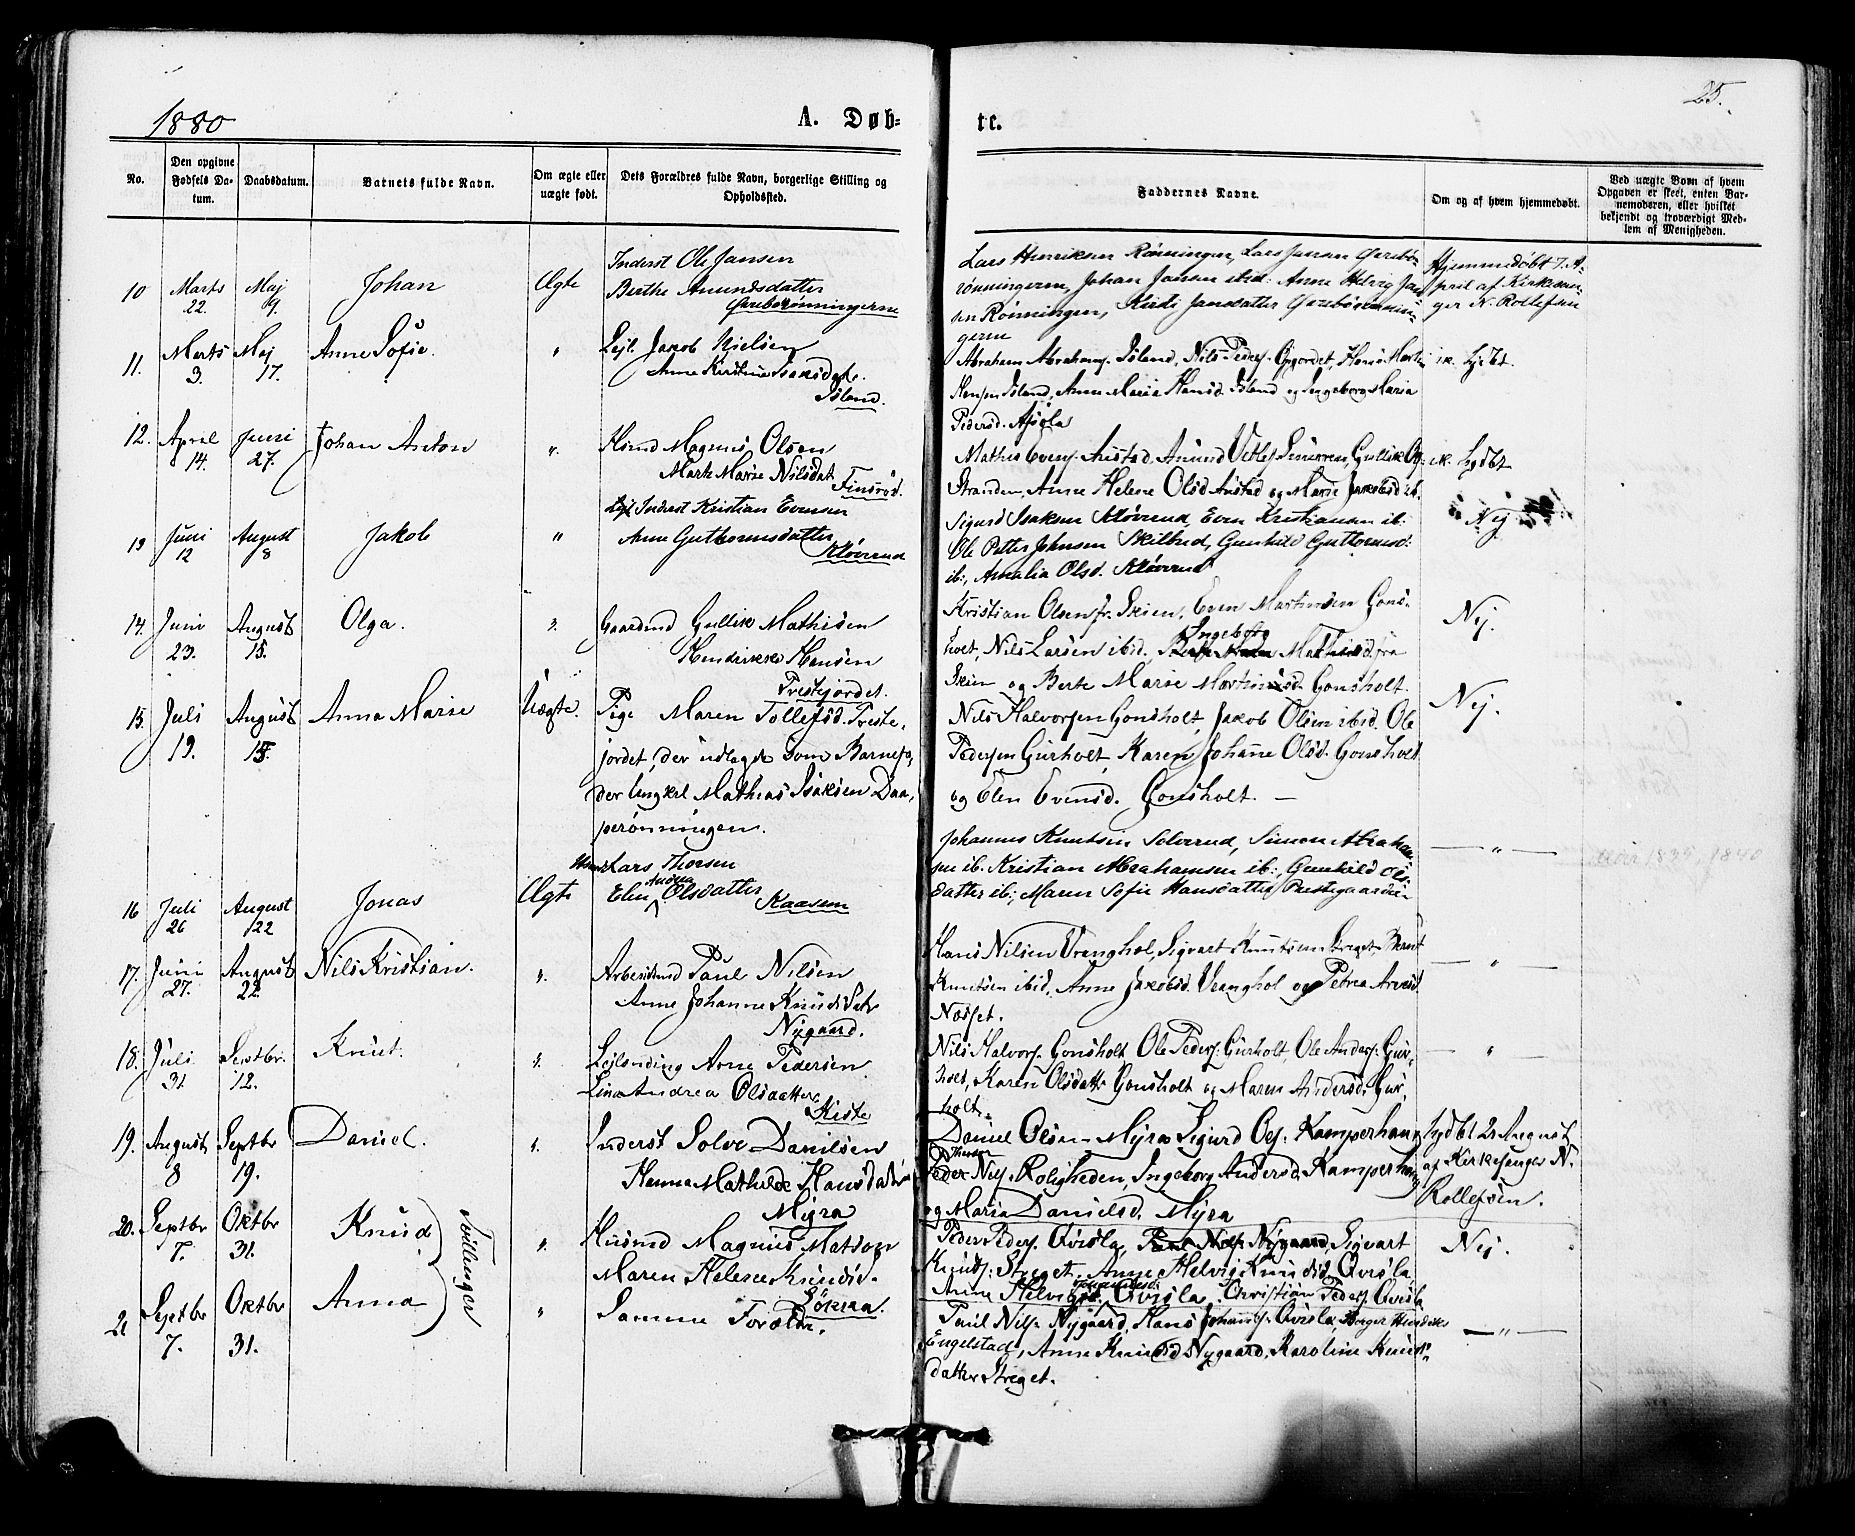 25.
1880
A. Døb-
te.
No.
Den opgivne
Fødsels Da-
tum.
Daabsdatum.
Barnets fulde Navn.
Om ægte eller
uægte født.
Dets Forældres fulde Navn, borgerlige Stilling og
Opholdssted.
Faddernes Navne.
Om og af hvem hjemmedøbt.
Ved uægte Børn af hvem
Opgaven er skeet, enten Bar-
nemoderen, eller hvilket
bekjendt og troværdigt Med-
lem af Menigheden.
10 Marts 22. Maj 9. Johan Ægte
Inderst Ole Jansen
Berthe Amundsdatter
Lars Henriksen Rønningen, Lars Jansen
rønningerne, Johan Jansen ibid: Anne Helvig Jan
sen Rønningen, Jansdatter
gerne
Hjemmedøbt 7. A-
pril af Kirkesan-
ger N. Rollefsen
11. Marts 3. Maj 17. Anne Sofie. "
Lejl. Jakob Nielsen
Anne Kirstine Isaksdatr.
Island.
Abraham Abrahams. Island, Nils Peders.
Island, Anne Maria Hansd. Island og Ingeborg Maria
Pedersd.
ik. hjdbt.
12. April 14. Juni 27. Johan Anton "
Husmd Magnus Olsen
Marte Marie Nilsdat.
Finsrød.
Mathis Evens. Anstad, Amund
Stranden, Anne Helene Olsd Anstad og Marie Jakobsd ib.
ik. hjdbt
13 Juni 12 August 8 Jakob "
Inderst Kristian Evensen
Anne Guthormsdatter
Kløverud
Sigurd Isaksen Kløverud, Even Kristiansen ib:
Ole Petter Johnsen Skilbred, Gunhild Guttormsd:
ib:, Amalia Olsd. Kløverud
Nej
14. Juni 23. August 15. Olga. "
Gaardmd Gullik Mathisen
Hendrikke Hansen
Prestejordet.
Kristian Olsen fr. Skien, Even Martinsen Gons-
holt, Nils Larsen ibid, Ingeborg Mathisd. fra
Skien og Berte Marie Martinsd. Gonsholt.
Nej.
15. Juli 19. August 15. Anna Marie Uægte.
Pige Maren Tollefsd. Preste-
jordet, der udlagde som Barnefa-
der Ungkrl Mathias Isaksen Daa-
perønningen.
Nils Halvorsen Gonsholt, Jakob Olsen ibid. Ole
Pedersen Gurholt, Karen Johanne Olsd. Gonsholt
og Elen Evensd. Gonsholt. —
Nej.
16 Juli 26 August 22 Jonas Ægte
Lars Thorsen
Elen Andrea Olsdatter
Kaasene
Johannes Knutsen Solverud, Simon Abraham-
sen ib: Kristian Abrahamsen ib:, Gunhild Ols-
datter ib:, Maren Sofie Hansdatter Prestgaarden
— " —
17. Juni 27. August 22. Nils Kristian. "
Arbeidsmd Paul Nilsen
Anne Johanne Knudsdatr
Nygaard.
Hans Nilsen Vranghol, Sigvart Knutsen Streget, Bernt
Knutsen ibid, Anne Jakobsd. Vranghol og Petrea Arnesd.
Næsset.
— " —
18. Juli 31. Septbr. 12. Knut. "
Lejlending Arne Pedersen
Lina Andrea Olsdatter
Kiste
Nils Halvors. Gonsholt, Ole Peders. Gurholt, Ole Anders. Gur-
holt, Karen Olsdatter Gonsholt og Maren Andersd. Gur-
holt.
— " —
19. August 8 Septbr 19. Daniel. "
Inderst Solve Danilsen
Hanna Mathilde Hansdatter
Myra
Daniel Olsen Myra, Sigurd Ols. Kamperhaug
Peder Nils. Roligheden, Ingeborg Andersd. Kamperhaug
og Maria Danielsd. Myra
hjdbt 21 August
af Kirkesanger N.
Rollefsen.
20. Septbr 7. Oktbr 31. Knud "
Tvillinger
Husmd Magnus Matson
Maren Helene Knudsd.
Peder Peders. Qvisla, Nygaard, Sigvart
Knuds. Streget, Anne Helvig Knudsd. Qvisla
Nej.
21 Septbr 7. Oktbr 31. Anna "
Samme Forældre.
Anne Helvig Johannesd. Qvisla. Christian Peders. Qvisla
Paul Nils. Nygaard, Hans Johanns. Qvisla,
Engelstad, Anne Knudsd Nygaard, Karoline Knuds-
datter Streget.
— " —